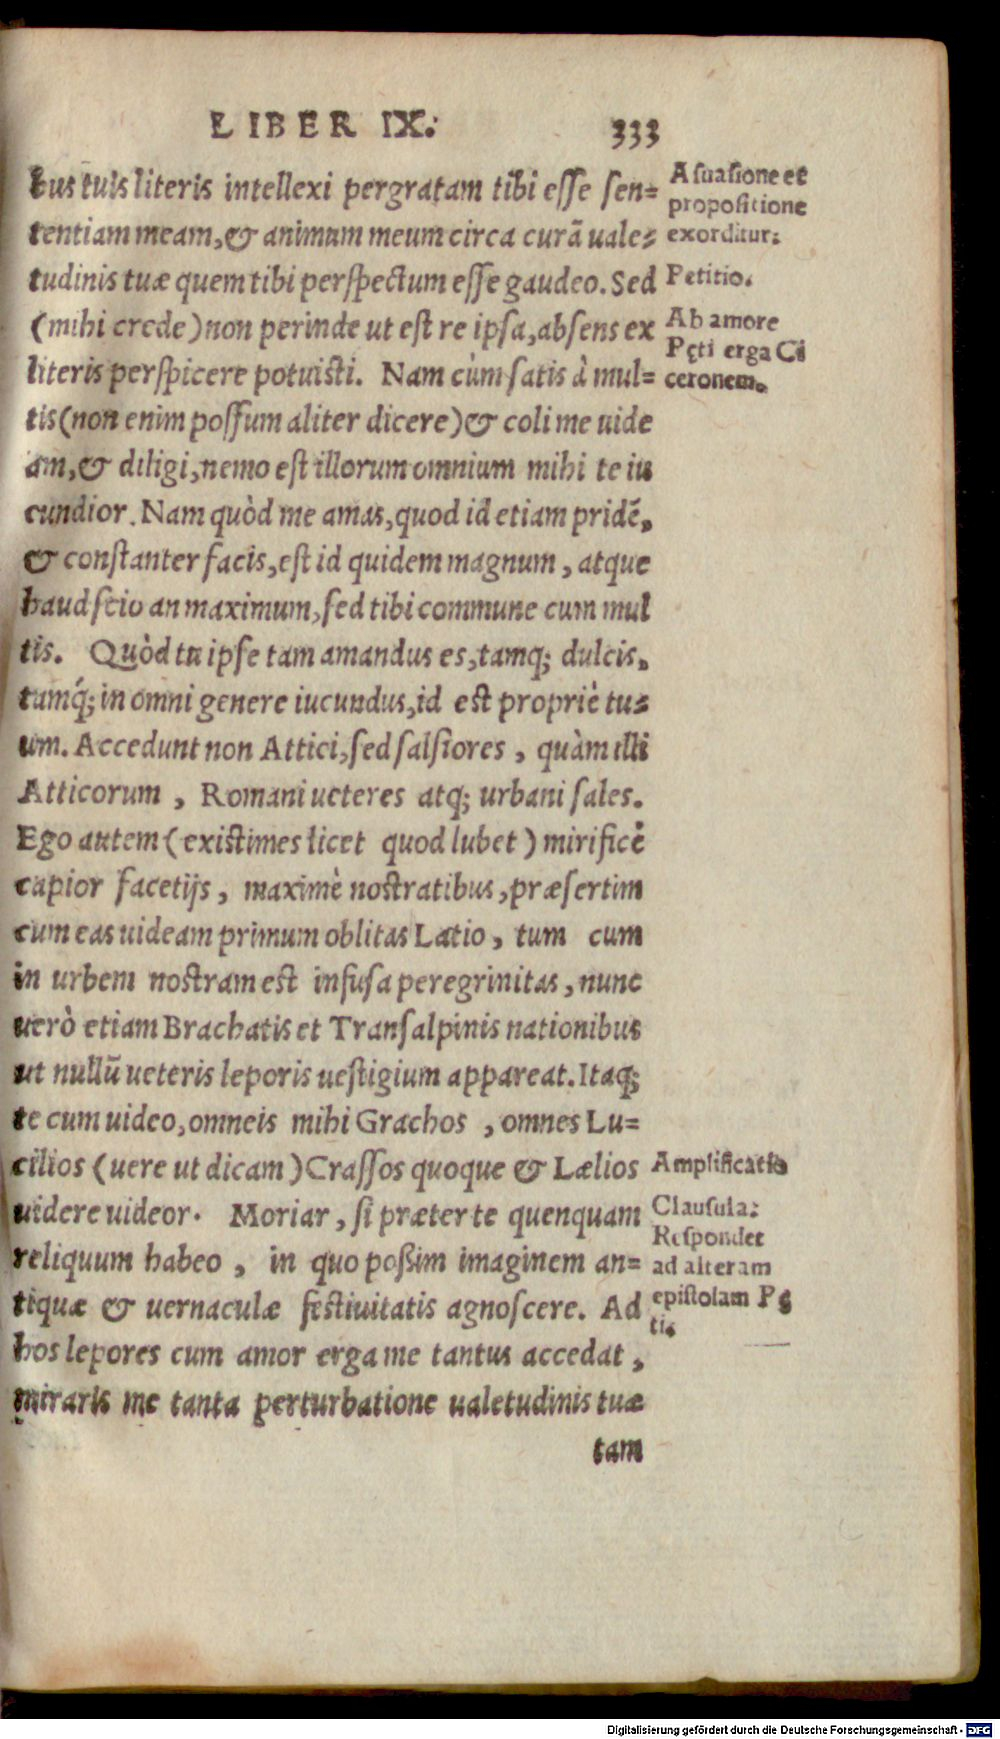 LIBER IX. 333
bus tuis literis intellexi pergratam tibi esse sen=
tentiam meam, & animum meum circa curā uale=
tudinis tuæ quem tibi perspectum esse gaudeo. Sed
(mihi crede) non perinde ut est re ipsa, absens ex
literis perspicere potuisti. Nam cùm satis à mul=
tis (non enim possum aliter dicere) & coli me uide
am, & diligi, nemo est illorum omnium mihi te iu
cundior. Nam quòd me amas, quod id etiam pridē,
& constanter facis, est id quidem magnum, atque
haud scio an maximum, sed tibi commune cum mul
tis. Quòd tu ipse tam amandus es, tamq; dulcis,
tamq́; in omni genere iucundus, id est propriè tu=
um. Accedunt non Attici, sed salsiores, quàm illi
Atticorum, Romani ueteres atq; urbani sales.
Ego autem (existimes licet quod lubet) mirificè
capior facetijs, maximè nostratibus, præsertim
cum eas uideam primum oblitas Latio, tum cum
in urbem nostram est infusa peregrinitas, nunc
uerò etiam Brachatis et Transalpinis nationibus
ut nullū ueteris leporis uestigium appareat. Itaq;
te cum uideo, omneis mihi Grachos, omnes Lu=
cilios (uere ut dicam) Crassos quoque & Lælios
uidere uideor. Moriar, si præter te quenquam
reliquum habeo, in quo poßim imaginem an=
tiquæ & uernaculæ festiuitatis agnoscere. Ad
hos lepores cum amor erga me tantus accedat,
miraris me tanta perturbatione ualetudinis tuæ
tam
A suasione et
propositione
exorditur.
Petitio.
Ab amore
Pęti erga Ci
ceronem.
Amplificatio
Clausula:
Respondet
ad alteram
epistolam Pę
ti.
Digitalisierung gefördert durch die Deutsche Forschungsgemeinschaft - DFG